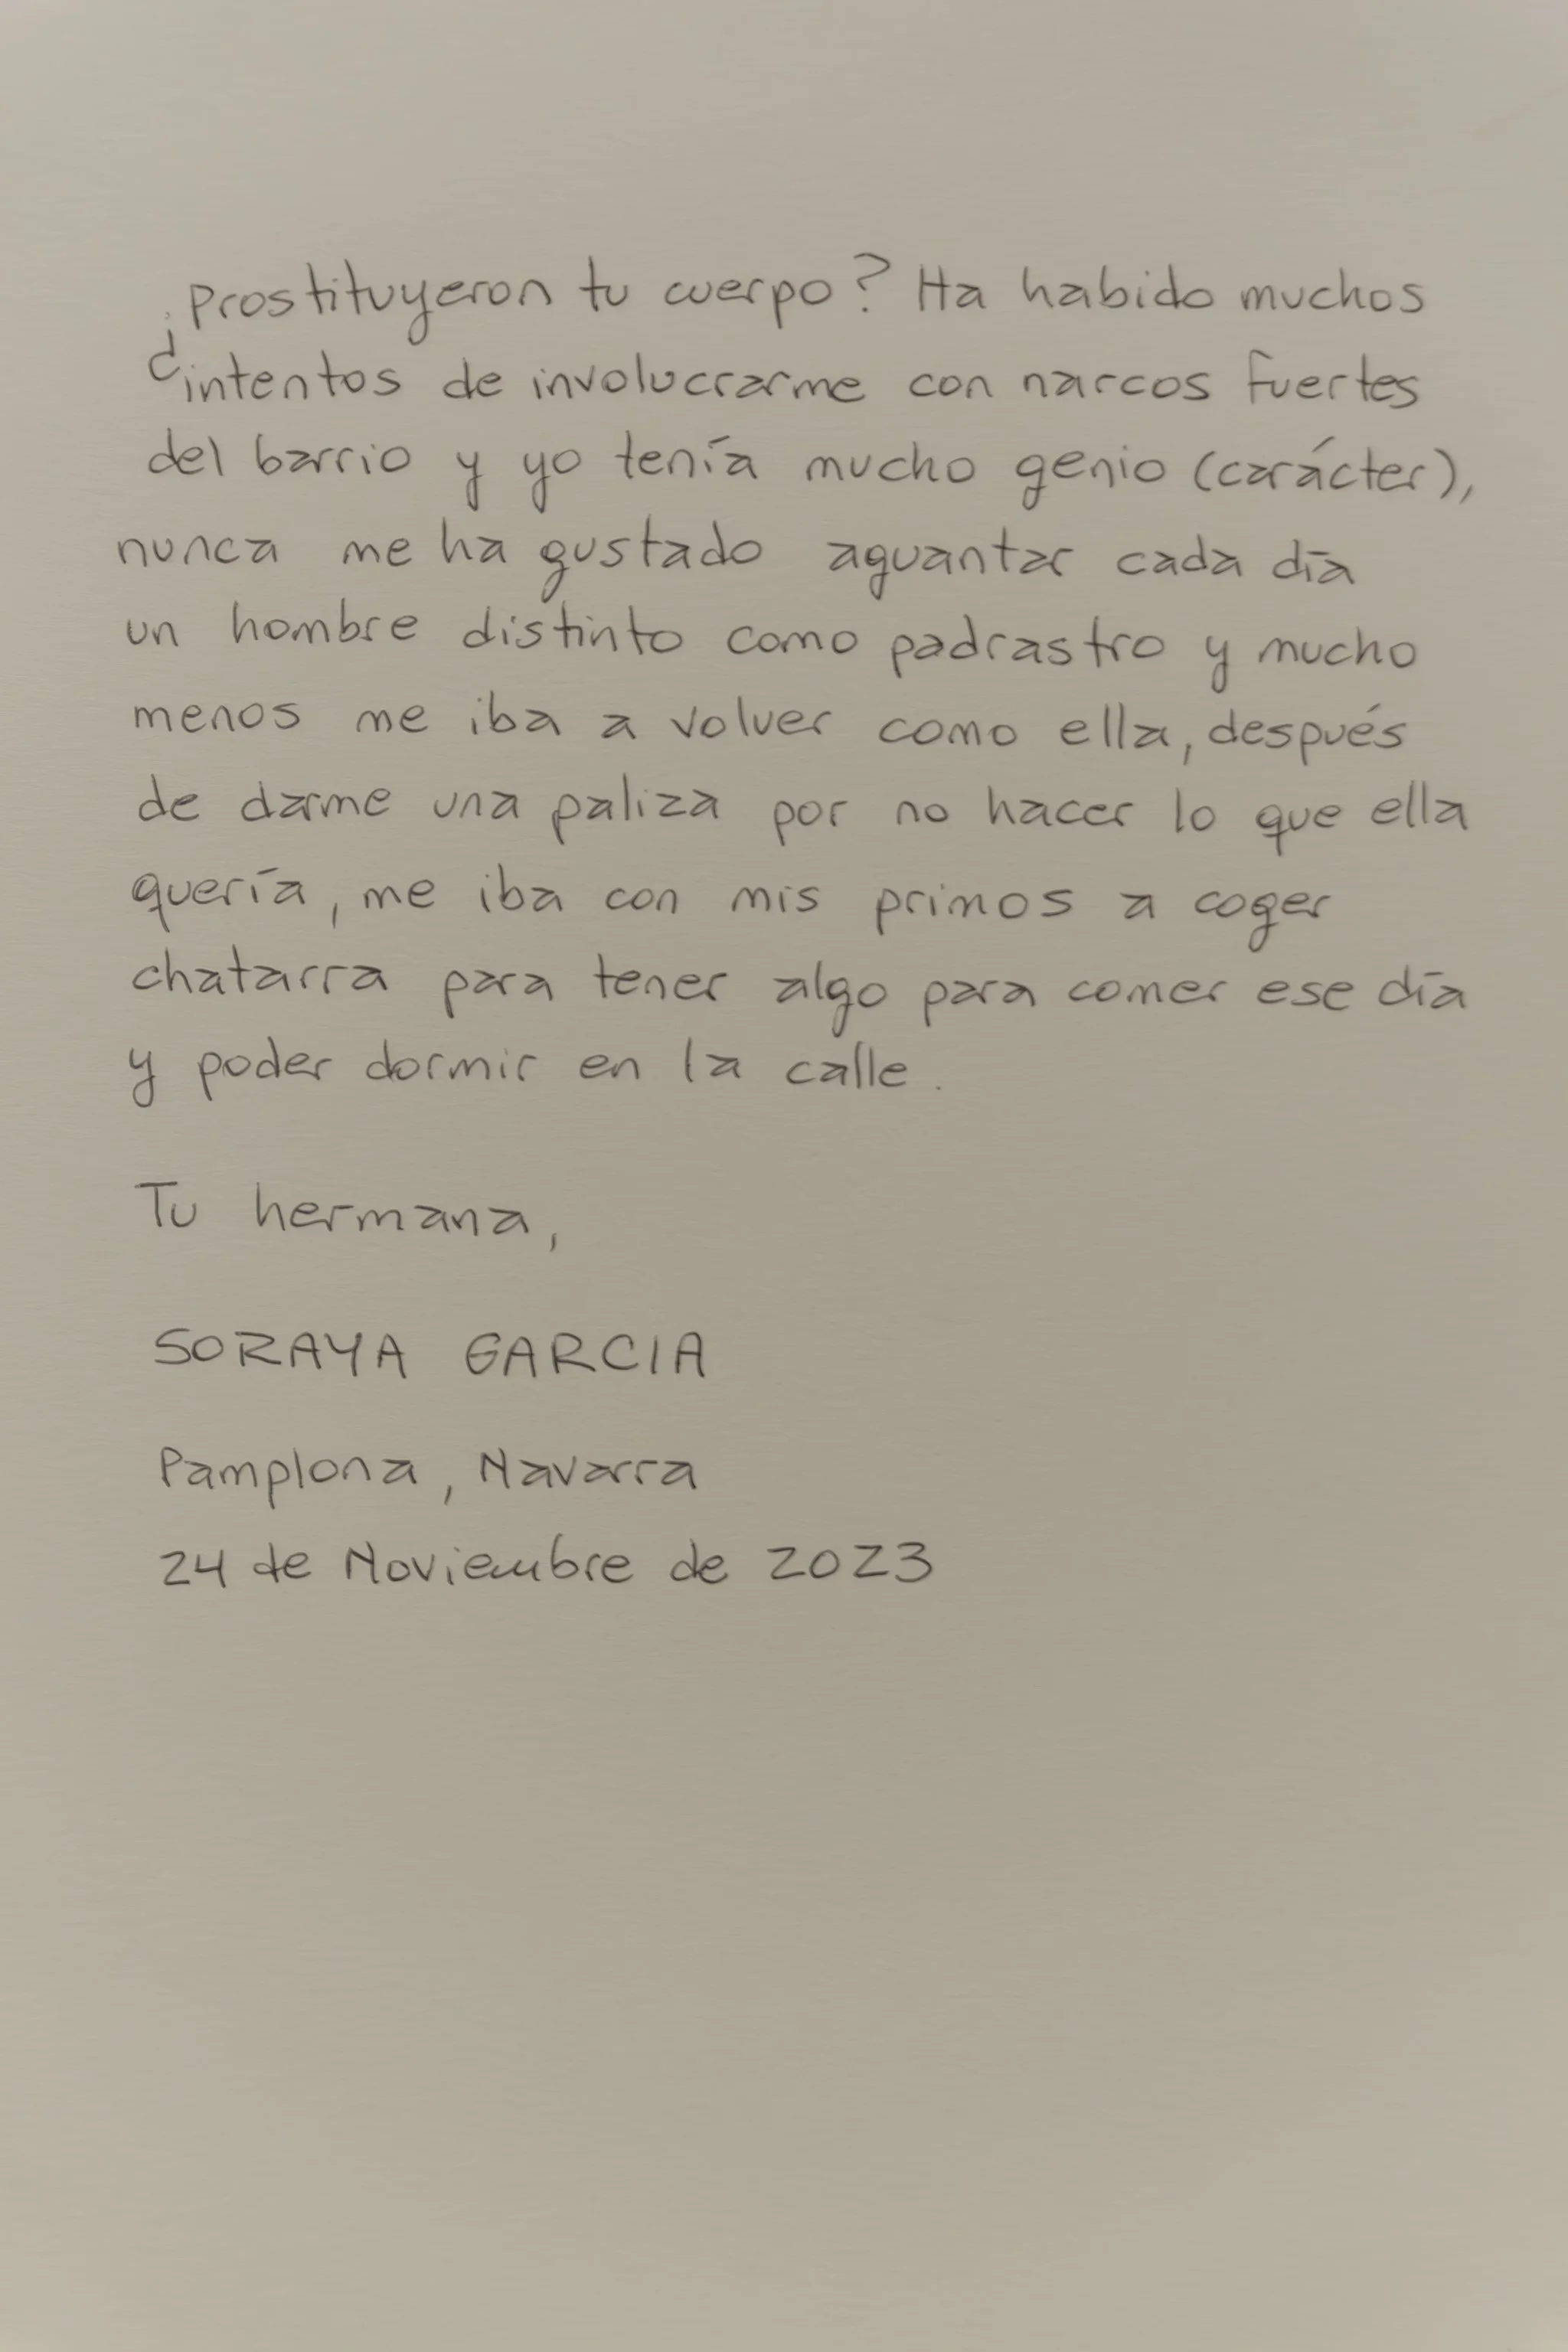 ¿Prostituyeron tu cuerpo? Ha habido muchos
intentos de involucrarme con narcos fuertes
del barrio y yo tenía mucho genio (carácter),
nunca me ha gustado aguantar cada día
un hombre distinto como padrastro y mucho
menos me iba a volver como ella, después
de darme una paliza por no hacer lo que ella
quería, me iba con mis primos a coger
chatarra para tener algo para comer ese día
y poder dormir en la calle.
Tu hermana,
SORAYA GARCIA
Pamplona, Navarra
24 de Noviembre de 2023